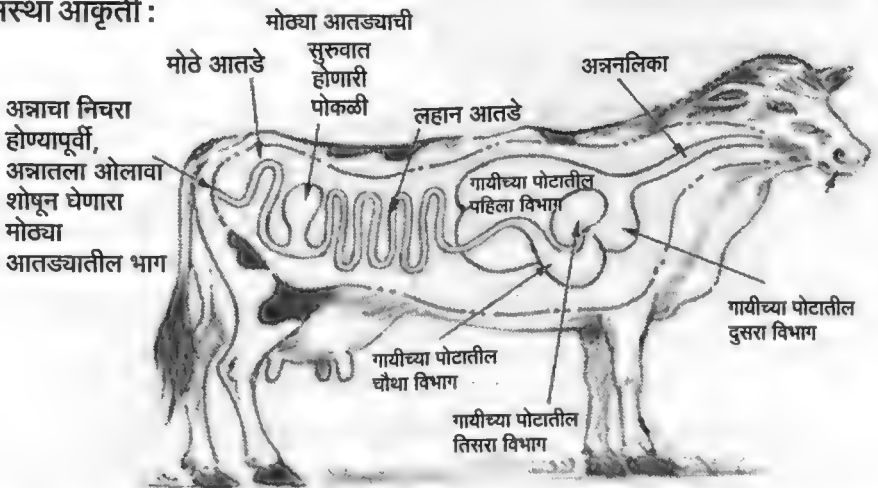 आकृती :
मोठ्या आतड्याची
सुरुवात
होणारी
पोकळी
मोठे आतडे
अन्ननलिका
लहान आतडे
अन्नाचा निचरा
होण्यापूर्वी,
अन्नातला ओलावा
शोषून घेणारा
मोठ्या
आतड्यातील भाग
गायीच्या पोटातील
पहिला विभाग
गायीच्या पोटातील
दुसरा विभाग
गायीच्या पोटातील
चौथा विभाग
गायीच्या पोटातील
तिसरा विभाग